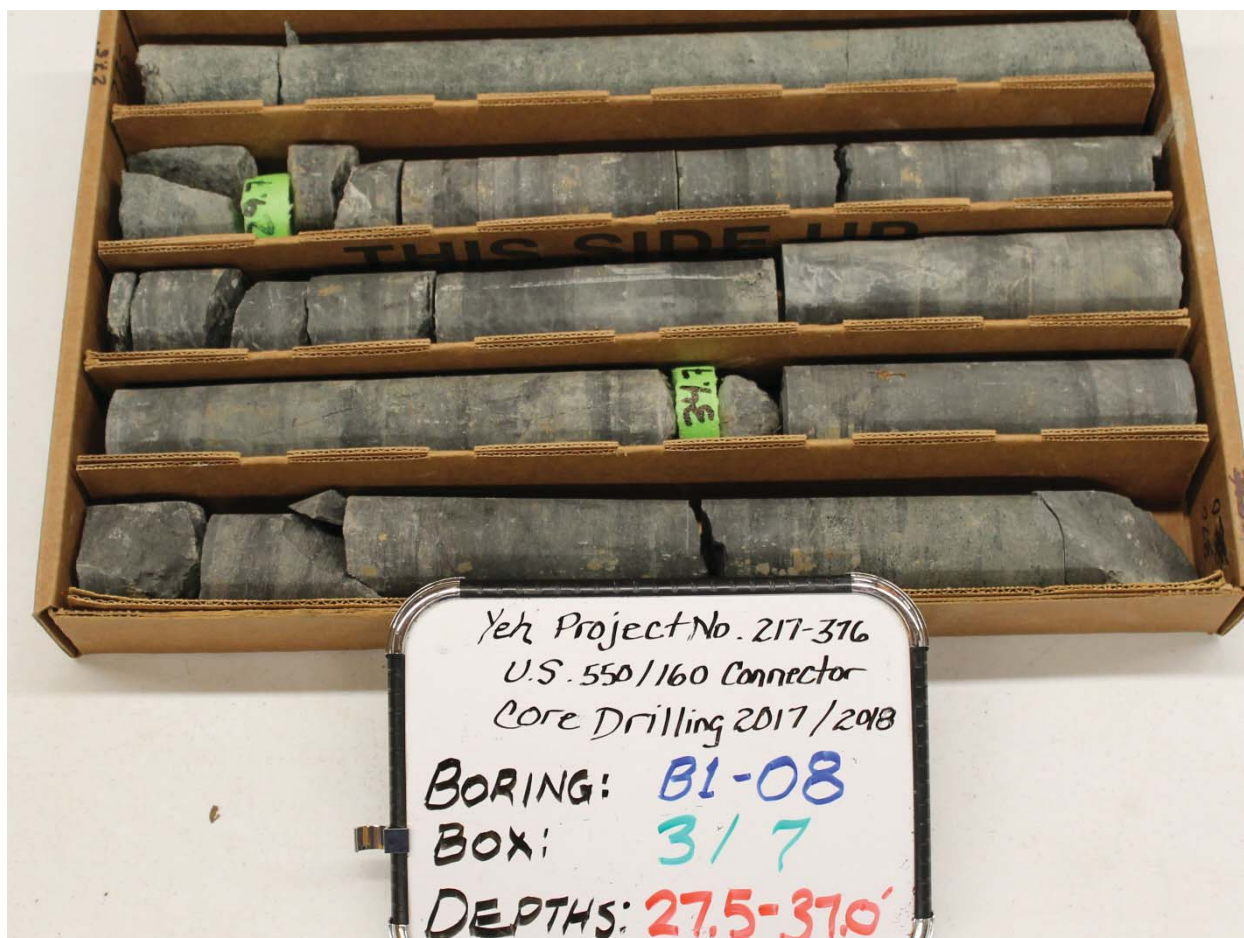 THIS SIDE UP
Yeh Project No. 217-376
U.S. 550/160 Connector
Core Drilling 2017/2018
BORING: B1-08
BOX: 3/7
DEPTHS: 27.5-37.0'